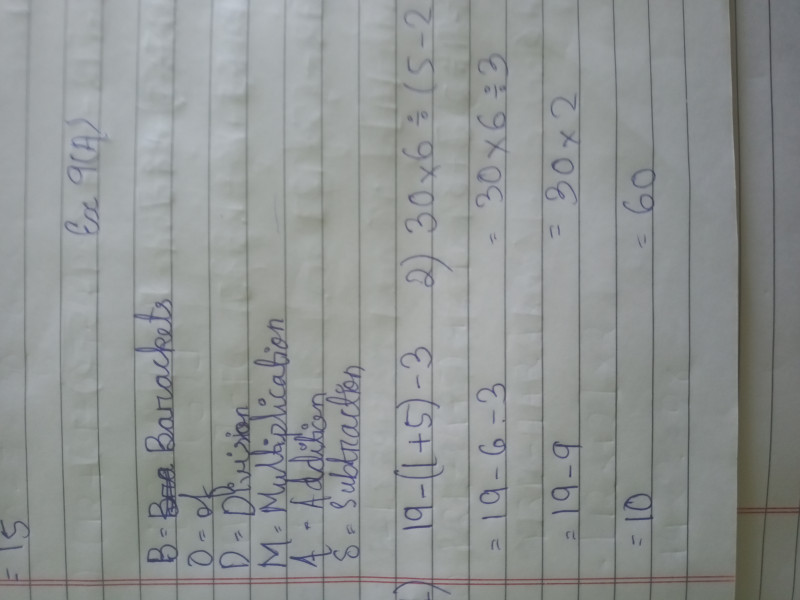 = 15
Ex 9(A)
B = Barackets
O = of
D = Division
M = Multiplication
A = Addition
S = Subtraction
1) 19-(1+5)-3
= 19-6-3
= 19-9
= 10
2) 30×6÷(5-2
= 30×6÷3
= 30×2
= 60